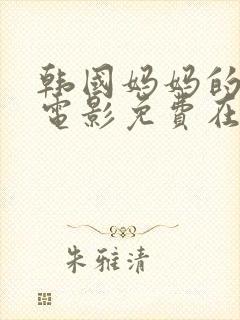 韩国妈妈的
电影免费在
朱雅清